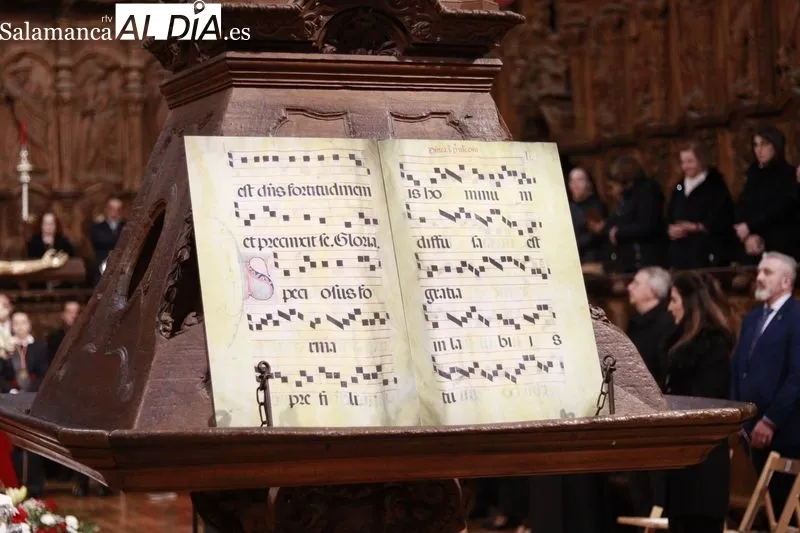 Salamanca rtv AL DÍA .es
est dñs fortitudinem
et precinxit se. Gloria.
Speciosus fo
rma
pre fi li
is ho minu m
diffu sa est
gratia
in la bi i s
tu